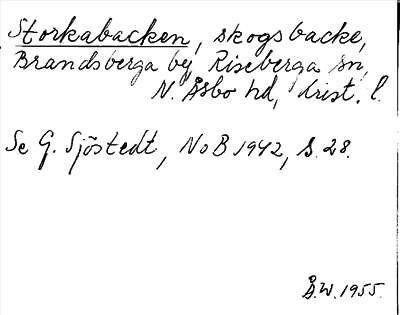 Storkabacken, skogsbacke,
Brandsberga by Riseberga sn,
N. Åsbo hd, Krist. l.
Se G. Sjöstedt, NoB 1942, s. 28.
Å.W. 1955.